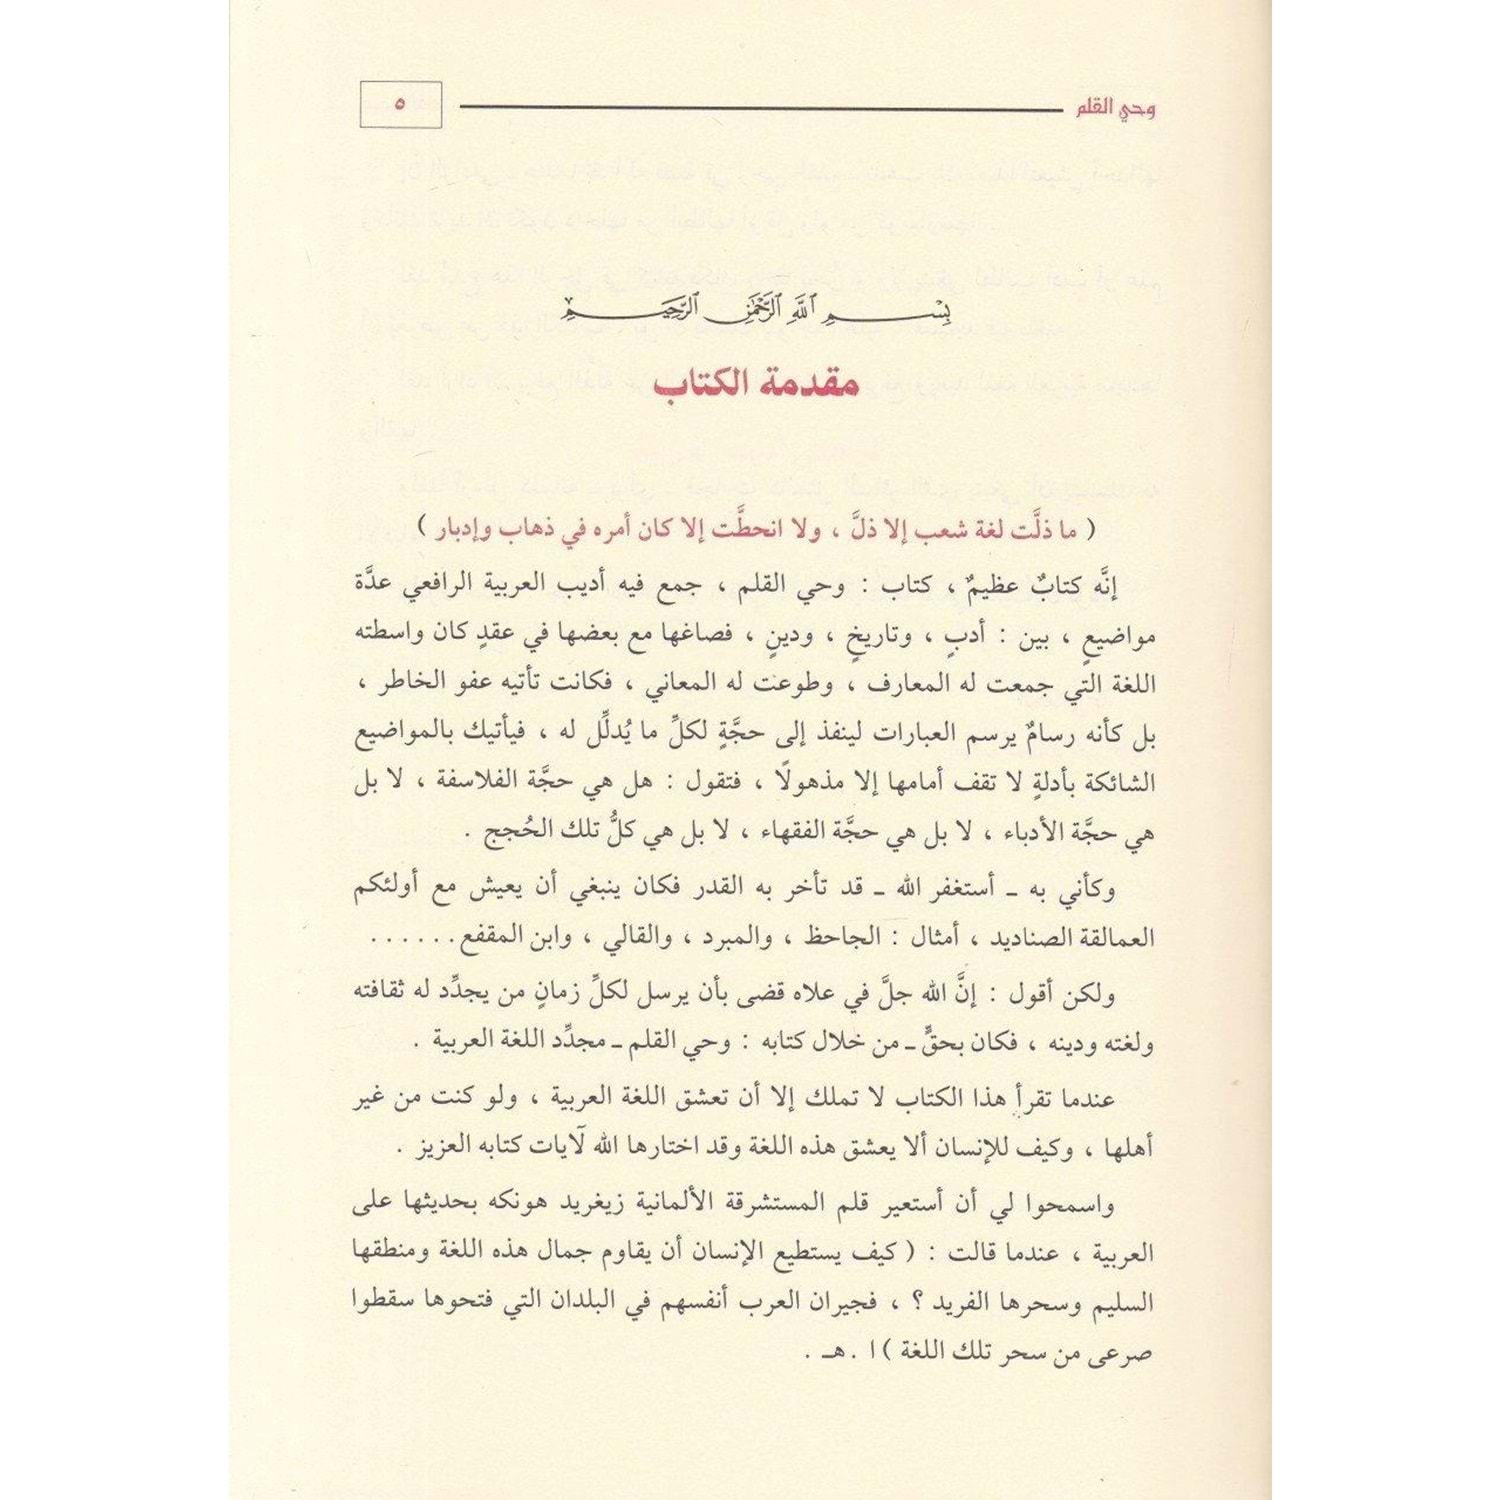 وحي القلم
٥
بسم الله الرحمن الرحيم
مقدمة الكتاب
( ما ذلَّت لغة شعب إلا ذلَّ ، ولا انحطَّت إلا كان أمره في ذهاب وإدبار )
إنَّه كتابٌ عظيمٌ ، كتاب : وحي القلم ، جمع فيه أديب العربية الرافعي عدَّة
مواضيعٍ ، بين : أدبٍ ، وتاريخٍ ، ودينٍ ، فصاغها مع بعضها في عقدٍ كان واسطته
اللغة التي جمعت له المعارف ، وطوعت له المعاني ، فكانت تأتيه عفو الخاطر ،
بل كأنه رسامٌ يرسم العبارات لينفذ إلى حجَّةٍ لكلِّ ما يُدلِّل له ، فيأتيك بالمواضيع
الشائكة بأدلةٍ لا تقف أمامها إلا مذهولًا ، فتقول : هل هي حجَّة الفلاسفة ، لا بل
هي حجَّة الأدباء ، لا بل هي حجَّة الفقهاء ، لا بل هي كلُّ تلك الحُجج .
وكأني به ـ أستغفر الله ـ قد تأخر به القدر فكان ينبغي أن يعيش مع أولئكم
العمالقة الصناديد ، أمثال : الجاحظ ، والمبرد ، والقالي ، وابن المقفع......
ولكن أقول : إنَّ الله جلَّ في علاه قضى بأن يرسل لكلِّ زمانٍ من يجدِّد له ثقافته
ولغته ودينه ، فكان بحقٍّ ـ من خلال كتابه : وحي القلم ـ مجدِّد اللغة العربية .
عندما تقرأ هذا الكتاب لا تملك إلا أن تعشق اللغة العربية ، ولو كنت من غير
أهلها ، وكيف للإنسان ألا يعشق هذه اللغة وقد اختارها الله لآيات كتابه العزيز .
واسمحوا لي أن أستعير قلم المستشرقة الألمانية زيغريد هونكه بحديثها على
العربية ، عندما قالت : ( كيف يستطيع الإنسان أن يقاوم جمال هذه اللغة ومنطقها
السليم وسحرها الفريد ؟ ، فجيران العرب أنفسهم في البلدان التي فتحوها سقطوا
صرعى من سحر تلك اللغة ) ا . هـ .